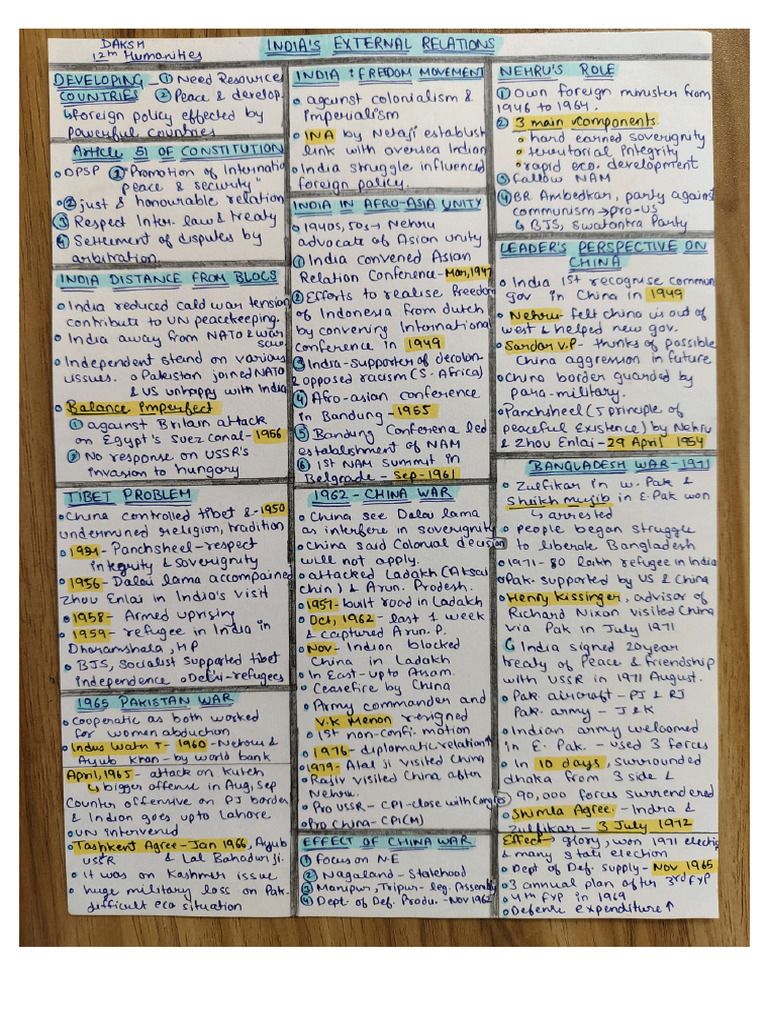 DAKSH
12th Humanities
INDIA'S EXTERNAL RELATIONS
DEVELOPING ① Need Resources
COUNTRIES ② Peace & develop.
↳ foreign policy effected by
powerful countries
Article 51 OF CONSTITUTION
DPSP ① "Promotion of Internatio
peace & security"
② just & honourable relation
③ Respect Inter. law & treaty
④ Settlement of disputes by
arbitration.
INDIA DISTANCE FROM BLOCS
India reduced cald war tension
contribute to UN peacekeeping.
India away from NATO & war
saw
Independent stand on various
issues. Pakistan joined NATO
& US unhappy with India
Balance imperfect
① against Britain attack
on Egypt's suez canal - 1956
② No response on USSR's
invasion to hungary
TIBET PROBLEM
China controlled tibet &- 1950
undermined religion, tradition
Panchsheel - respect
integrity & sovereignity
1956 - Dalai lama accompained
Zhou Enlai in India's visit
1958 - Armed uprising
1959 - refugee in India in
Dharamshala, HP
BJS, Socialist supported tibet
independence Delai-refugees
1965 PAKISTAN WAR
cooperatic as both worked
for women abduction
Indus Watr T - 1960 - Nehru &
Ayub khan - by world bank
April, 1965 - attack on Kutch
↳ bigger offense in Aug, Sep
Counter offensive on PJ border
& Indian goes upto Lahore
UN intervened
Tashkent Agree - Jan 1966, Ayub
USSR & Lal Bahadur ji.
it was on Kashmir issue
huge military loss on Pak.
difficult eco situation
INDIA : FREEDOM MOVEMENT
against colonialism &
imperialism
INA by Netaji establish
link with oversea Indian
India struggle influenced
foreign policy.
INDIA IN AFRO-ASIA UNITY
1940s, 50s → Nehru
advocate of Asian unity
① India convened Asian
Relation Conference - Mar, 1947
② Efforts to realise freedom
of Indonesia from dutch
by convening International
conference in 1949
③ India - supporter of decolon-
& opposed racism (S. Africa)
④ Afro-asian conference
in Bandung - 1955
⑤ Bandung Conferena led
establishment of NAM
⑥ 1st NAM summit in
Belgrade - Sep - 1961
1962 - CHINA WAR
China see Dalai lama
as interfere in soverignity
China said Colonial decision
will not apply.
attacked Ladakh (Aksai
chin) & Arun. Pradesh.
1957 - built road in Ladakh
Oct, 1962 - last 1 week
& captured Arun. P.
Nov - Indian blocked
China in Ladakh
In East - upto Assam.
Ceasefire by China
Army commander and
V.K Menon resigned
1st non-confi. motion
1976 - diplomatic relation ↑
1979 - Atal ji visited China
Rajiv visited China after
Nehru.
Pro USSR - CPI - close with Congres
Pro China - CPI(M)
EFFECT OF CHINA WAR
① Focus on N-E
② Nagaland - Statehood
③ Manipur, Tripur - leg. Assembly
④ Dept. of Def. Produ. - Nov 1962
NEHRU'S ROLE
① Own foreign minister from
1946 to 1964.
② 3 main components
hard earned soverignity
territorial Integrity
rapid eco. development
③ Fallow NAM
④ BR. Ambedkar, party against
communism → pro-US
↳ BJS, Swatantra Party
LEADER'S PERSPECTIVE ON
CHINA
India 1st recognise commun
gov in China in 1949
Nehru - felt china is out of
west & helped new gov.
Sardar V.P - thinks of possible
China aggression in future
China border guarded by
para-military.
Panchsheel (5 principle of
peaceful Existence) by Nehru
& Zhou Enlai - 29 April 1954
BANGLADESH WAR - 1971
Zulfikar in W. Pak &
Sheikh mujib in E. Pak won
↳ arrested
people began struggle
to liberate Bangladesh
1971 - 80 lakh refugee in India
Pak. supported by US & China
Henry Kissinger, advisor of
Richard Nixon visited China
via Pak in July 1971
India signed 20 year
treaty of Peace & Friendship
with USSR in 1971 August.
Pak aircraft - PJ & RJ
Pak. army - J & K
Indian army welcomed
in E. Pak. - used 3 forces
In 10 days, surrounded
dhaka from 3 side &
90,000 forces surrendered
Shimla Agree. - Indira &
Zulfikar - 3 July 1972
Effect → glory, won 1971 electio
& many stati election
Dept of Def. Supply - Nov 1965
3 annual plan after 3rd FYP
4th FYP in 1969
Defense expenditure ↑